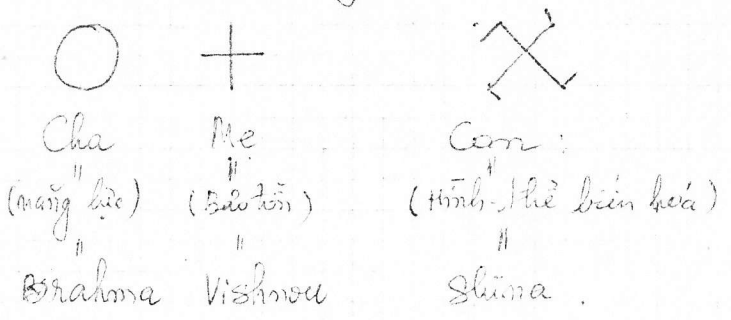 Cha Mẹ Con :
(năng lực) (Bảo tồn) (Hình-thể biến hoá)
Brahma Vishnou Shiva .